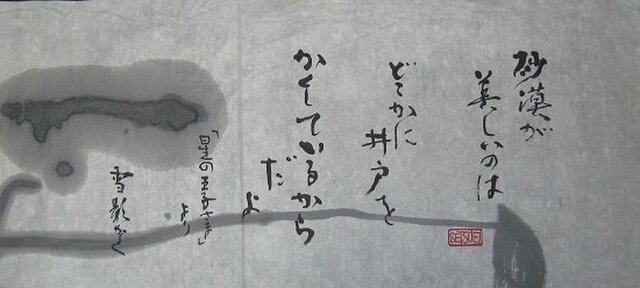 砂漠が
美しいのは
どこかに
井戸を
かくしているから
だよ
「星の王子さま」
より
雪影かく